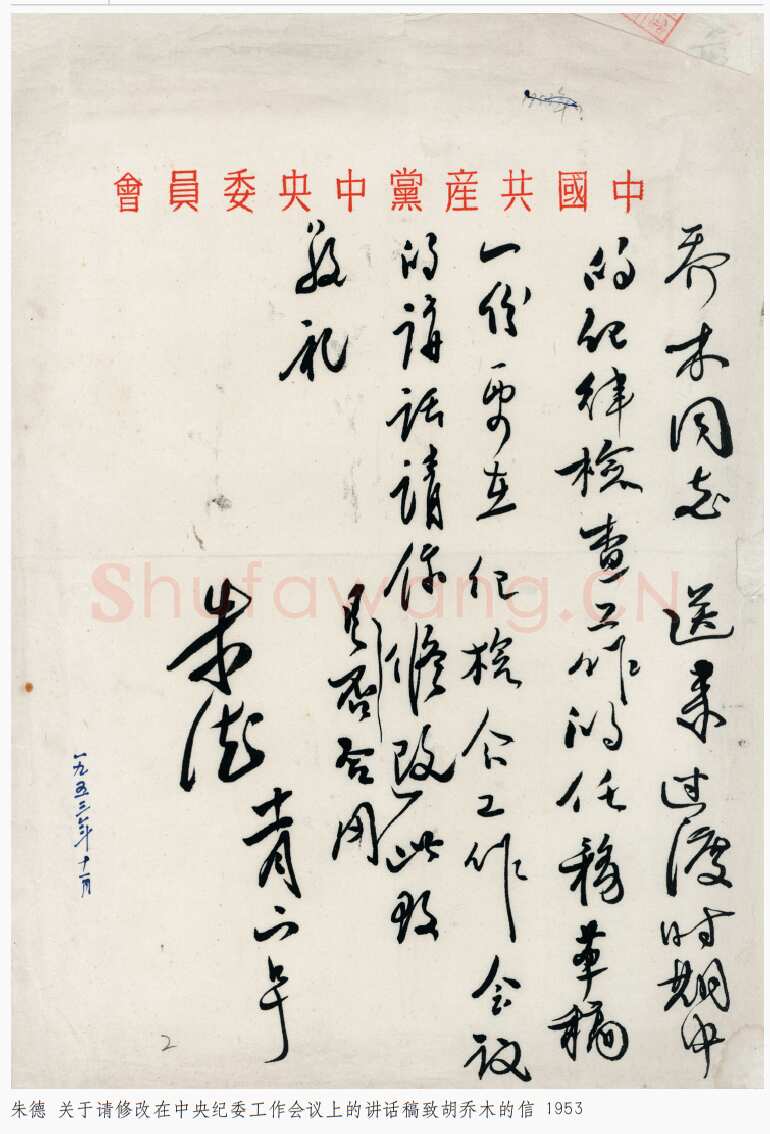 中國共産黨中央委員會
乔木同志 送来过渡时期中
的纪律檢查工作的任務草稿
一份要在纪檢会工作会议
的講話請你修改此致
否合用
敬礼
朱德
十一月
一九五三年十一月
2
Shufawang.CN
朱德 关于请修改在中央纪委工作会议上的讲话稿致胡乔木的信 1953